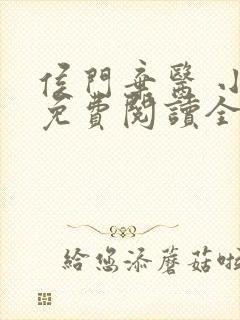 侯門弃醫 小
免費閱讀全
給您添蘑菇啦